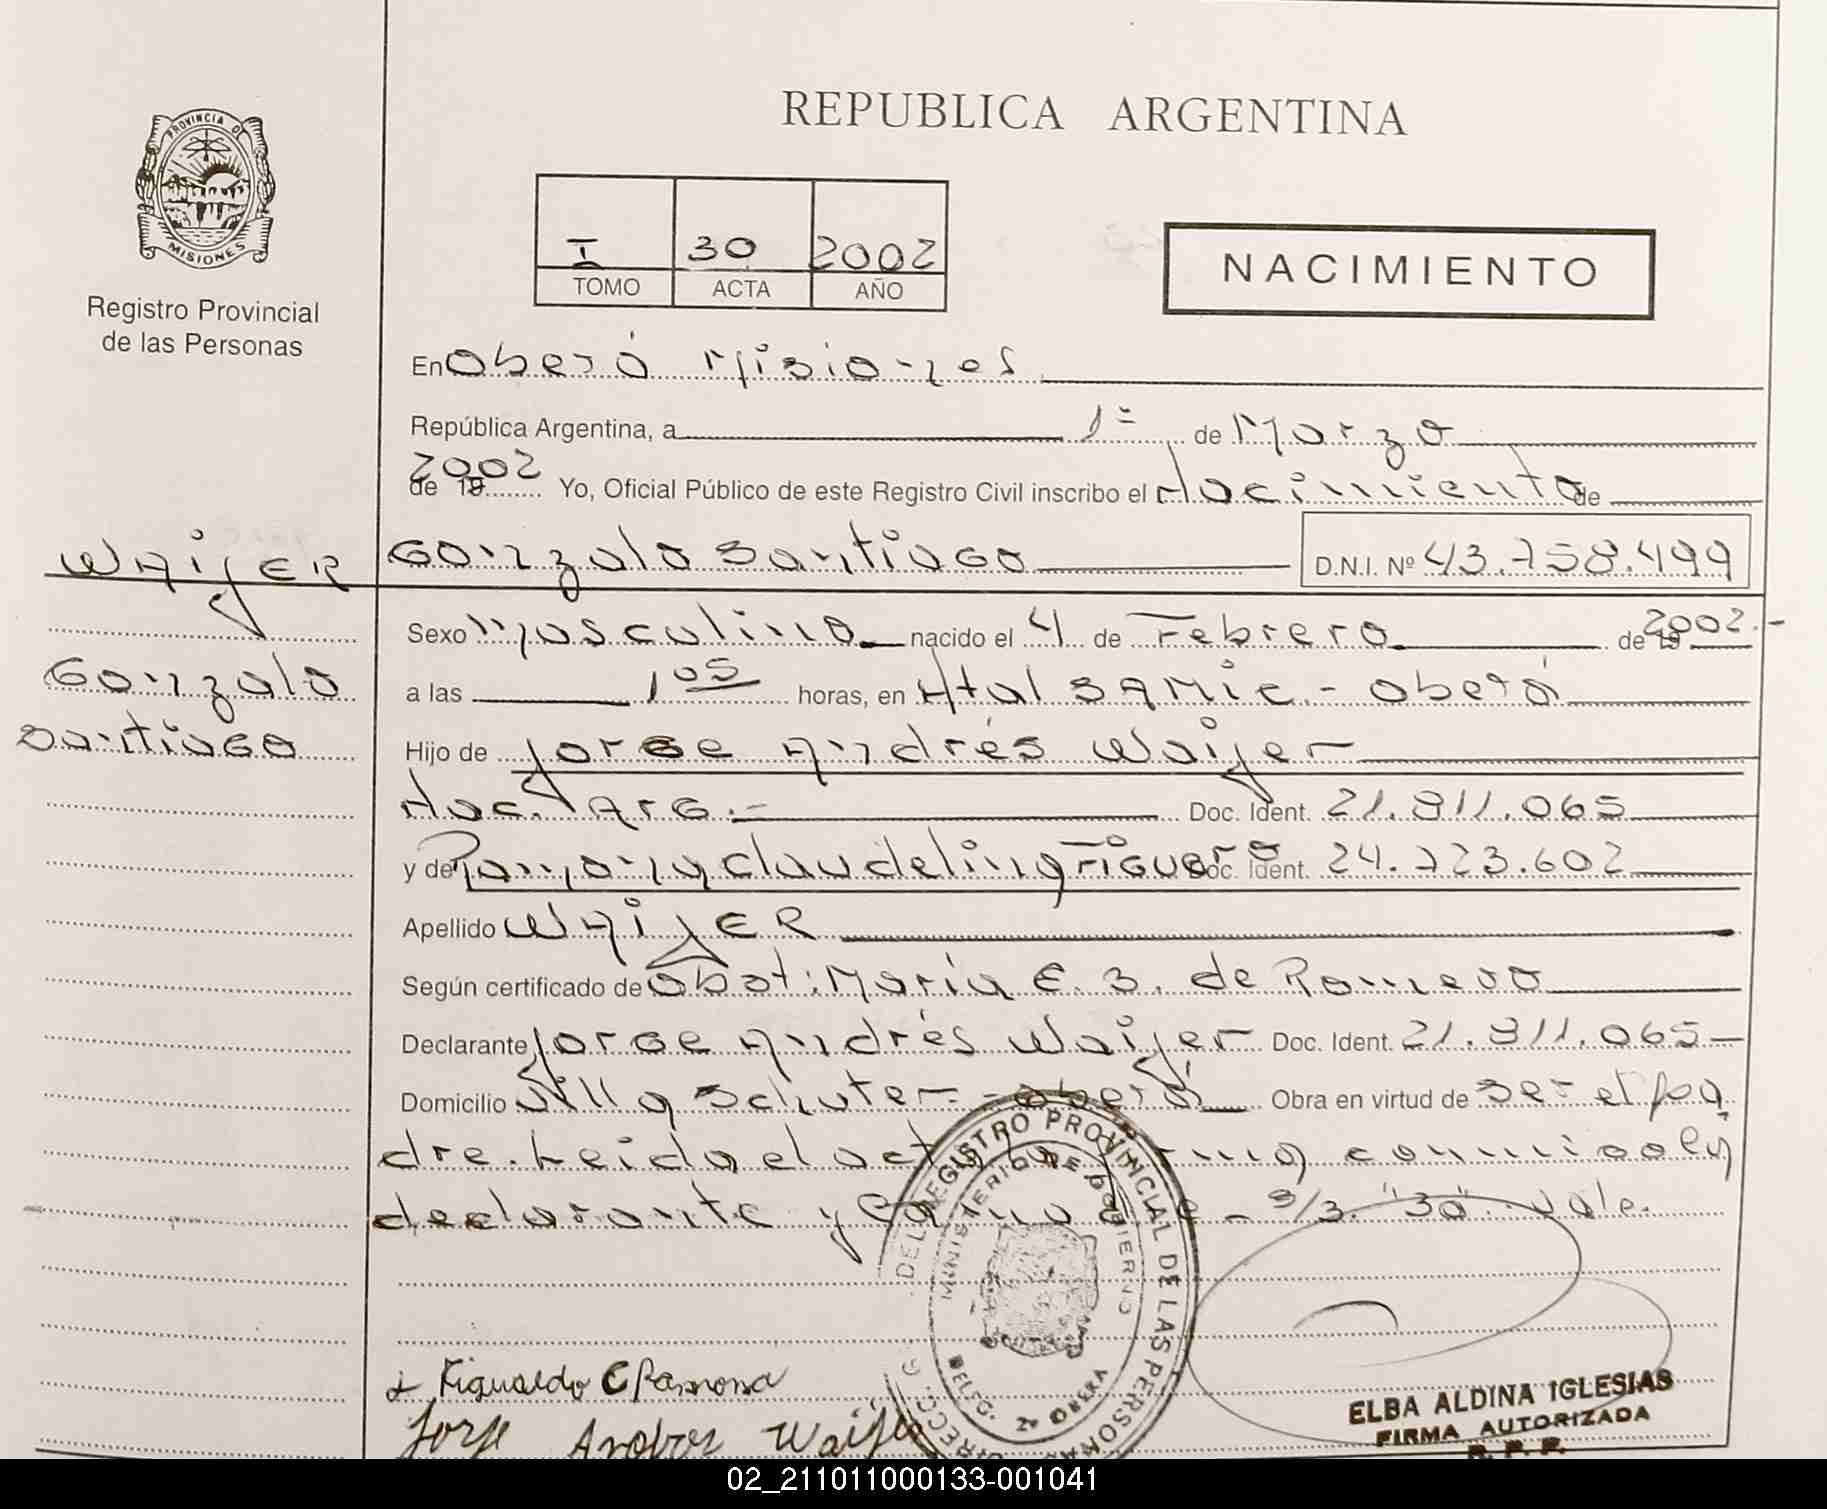 REPUBLICA ARGENTINA
PROVINCIA D
MISIONES
Registro Provincial
de las Personas
I 30 2002
TOMO ACTA AÑO
NACIMIENTO
En Oberá Misiones
República Argentina, a 1º de Marzo
2002
de 19 Yo, Oficial Público de este Registro Civil inscribo el Nacimiento de
WAIJER Gonzalo Santiago D.N.I. Nº 43.758.499
Gonzalo
Santiago
Sexo Masculino nacido el 4 de Febrero de 19 2002.-
a las 1 05 horas, en Htal SAMIC - Oberá
Hijo de Jorge Andrés Waijer
Nac. Arg.- Doc. Ident. 21.811.065
y de Ramona Claudelina Doc. Ident. 24.723.602
Apellido WAIJER
Según certificado de Obst: María E. S. de Romero
Declarante Jorge Andrés Waijer Doc. Ident. 21.811.065-
Domicilio Villa Schuter - Oberá Obra en virtud de ser el pa
dre. Leida el acta la firma conmigo el
declarante y la - S/R. "30" vale.
DIRECC. G. DEL REGISTRO PROVINCIAL DE LAS PERSONAS
MINISTERIO DE GOBIERNO
DELEG. 2º OBERA
Figueredo C Ramona
Jorge Andres Waijer
ELBA ALDINA IGLESIAS
FIRMA AUTORIZADA
R. P. P.
02_211011000133-001041